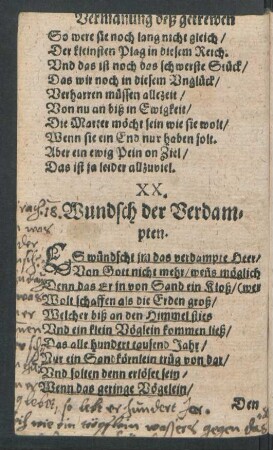 Vermahnung deß getrewen
So were sie noch lang nicht gleich /
Der kleinsten Plag in diesem Reich.
Vnd das ist noch das schwerste Stück /
Das wir noch in diesem Vnglück /
Verharren müssen allezeit /
Von nu an biß in Ewigkeit /
Die Marter möcht sein wie sie wolt /
Wenn sie ein End nur haben solt.
Aber ein ewig Pein on Ziel /
Das ist ja leider allzuviel.
XX.
Wundsch der Verdam-
pten.
ES wündscht jm das verdampte Heer /
Von Gott nicht mehr / weñs möglich
Denn das Er in von Sand ein Kloß / (wer
Wolt schaffen als die Erden groß /
Welcher biß an den Himmel stieß
Vnd ein klein Vöglein kommen ließ /
Das alle hundert tausend Jahr /
Nur ein Sandkörnlein trüg von dar /
Vnd solten denn erlöset sein /
Wenn das geringe Vögelein /
Den
18.
was
der
so lebt er hundert Jar.
wie ein tröpflein wassers gegen das